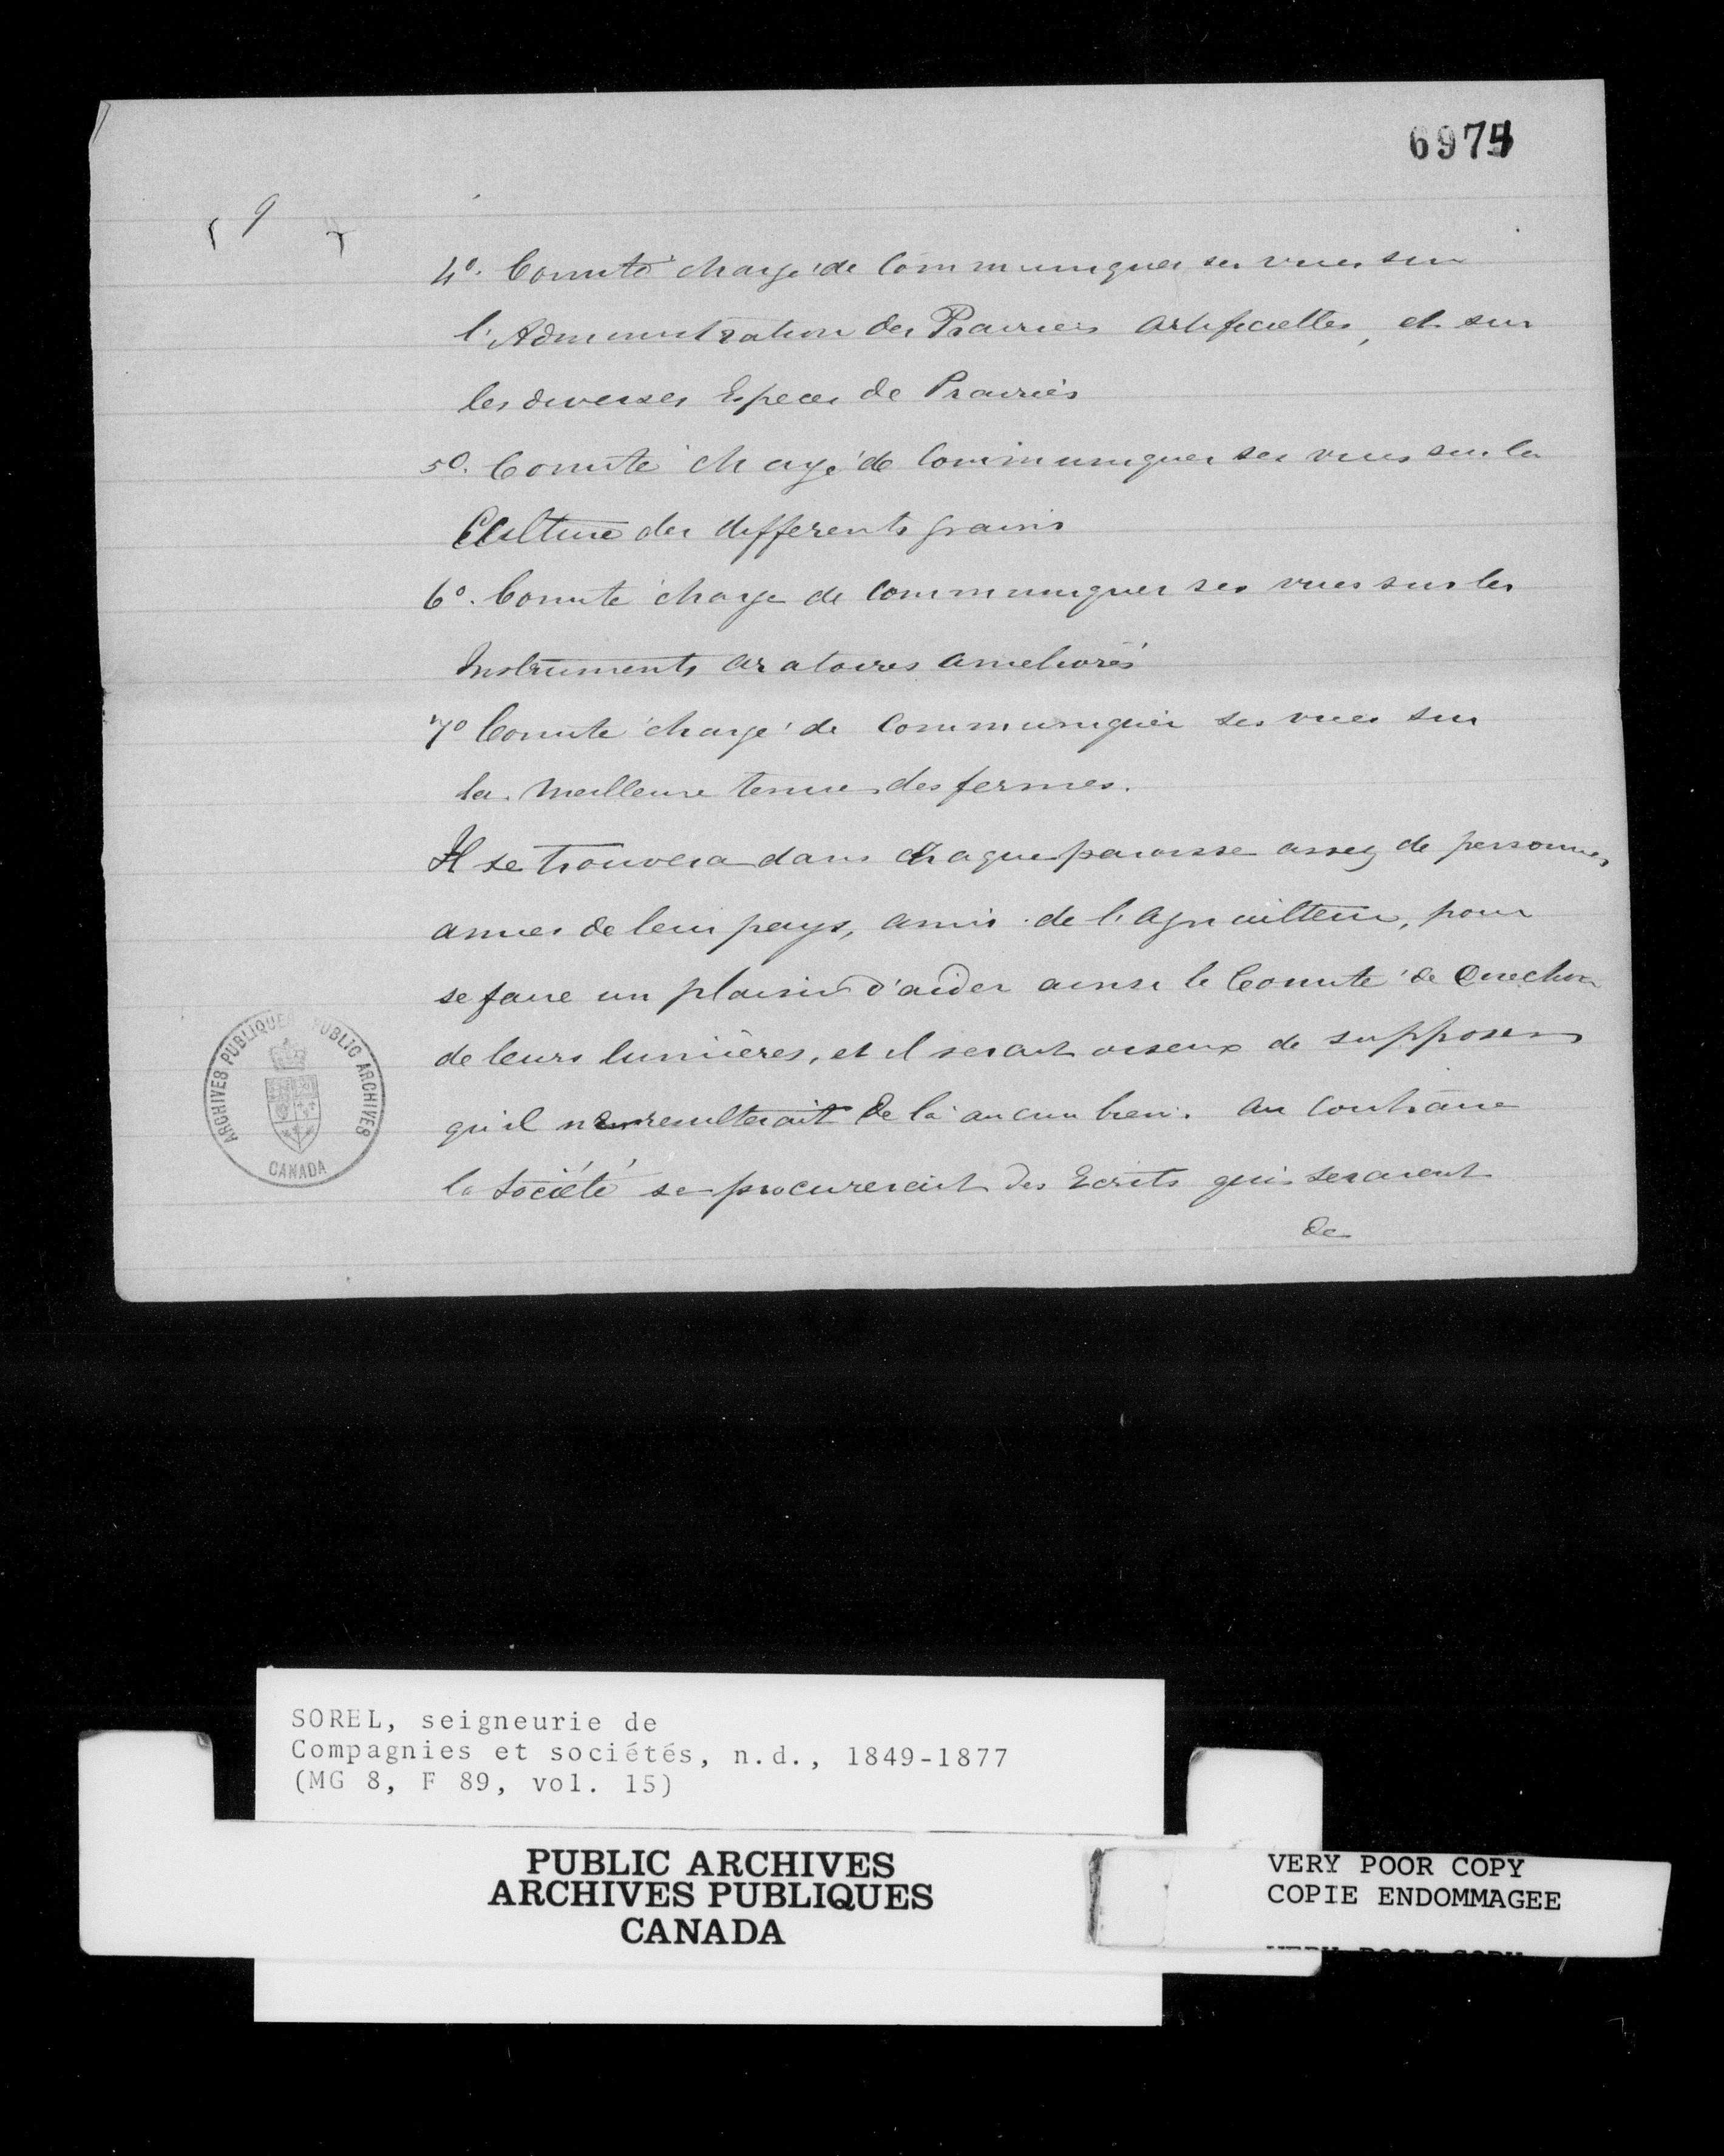 6974
9
4º. Comité chargé de Communiquer ses vues sur
l'Administration des Prairies Artificielles, et sur
les diverses Especes de Prairies
5º. Comité chargé de Communiquer ses vues sur la
Culture des differents grains
6º. Comité chargé de Communiquer ses vues sur les
Instruments aratoires ameliorés
7º Comité chargé de Communiquer ses vues sur
la Meilleure tenue des fermes.
Il se trouvera dans chaque paroisse assez de personnes
amies de leur pays, amis de l'Agriculture, pour
se faire un plaisir d'aider ainsi le Comité de Direction
de leurs lumières, et il serait oiseux de supposer
qu'il n'en resulterait de là aucun bien. Au Contraire
la Société se procurerait des Ecrits qui seraient
de
ARCHIVES PUBLIQUES PUBLIC ARCHIVES
CANADA
SOREL, seigneurie de
Compagnies et sociétés, n.d., 1849-1877
(MG 8, F 89, vol. 15)
PUBLIC ARCHIVES
ARCHIVES PUBLIQUES
CANADA
VERY POOR COPY
COPIE ENDOMMAGEE
VERY POOR COPY